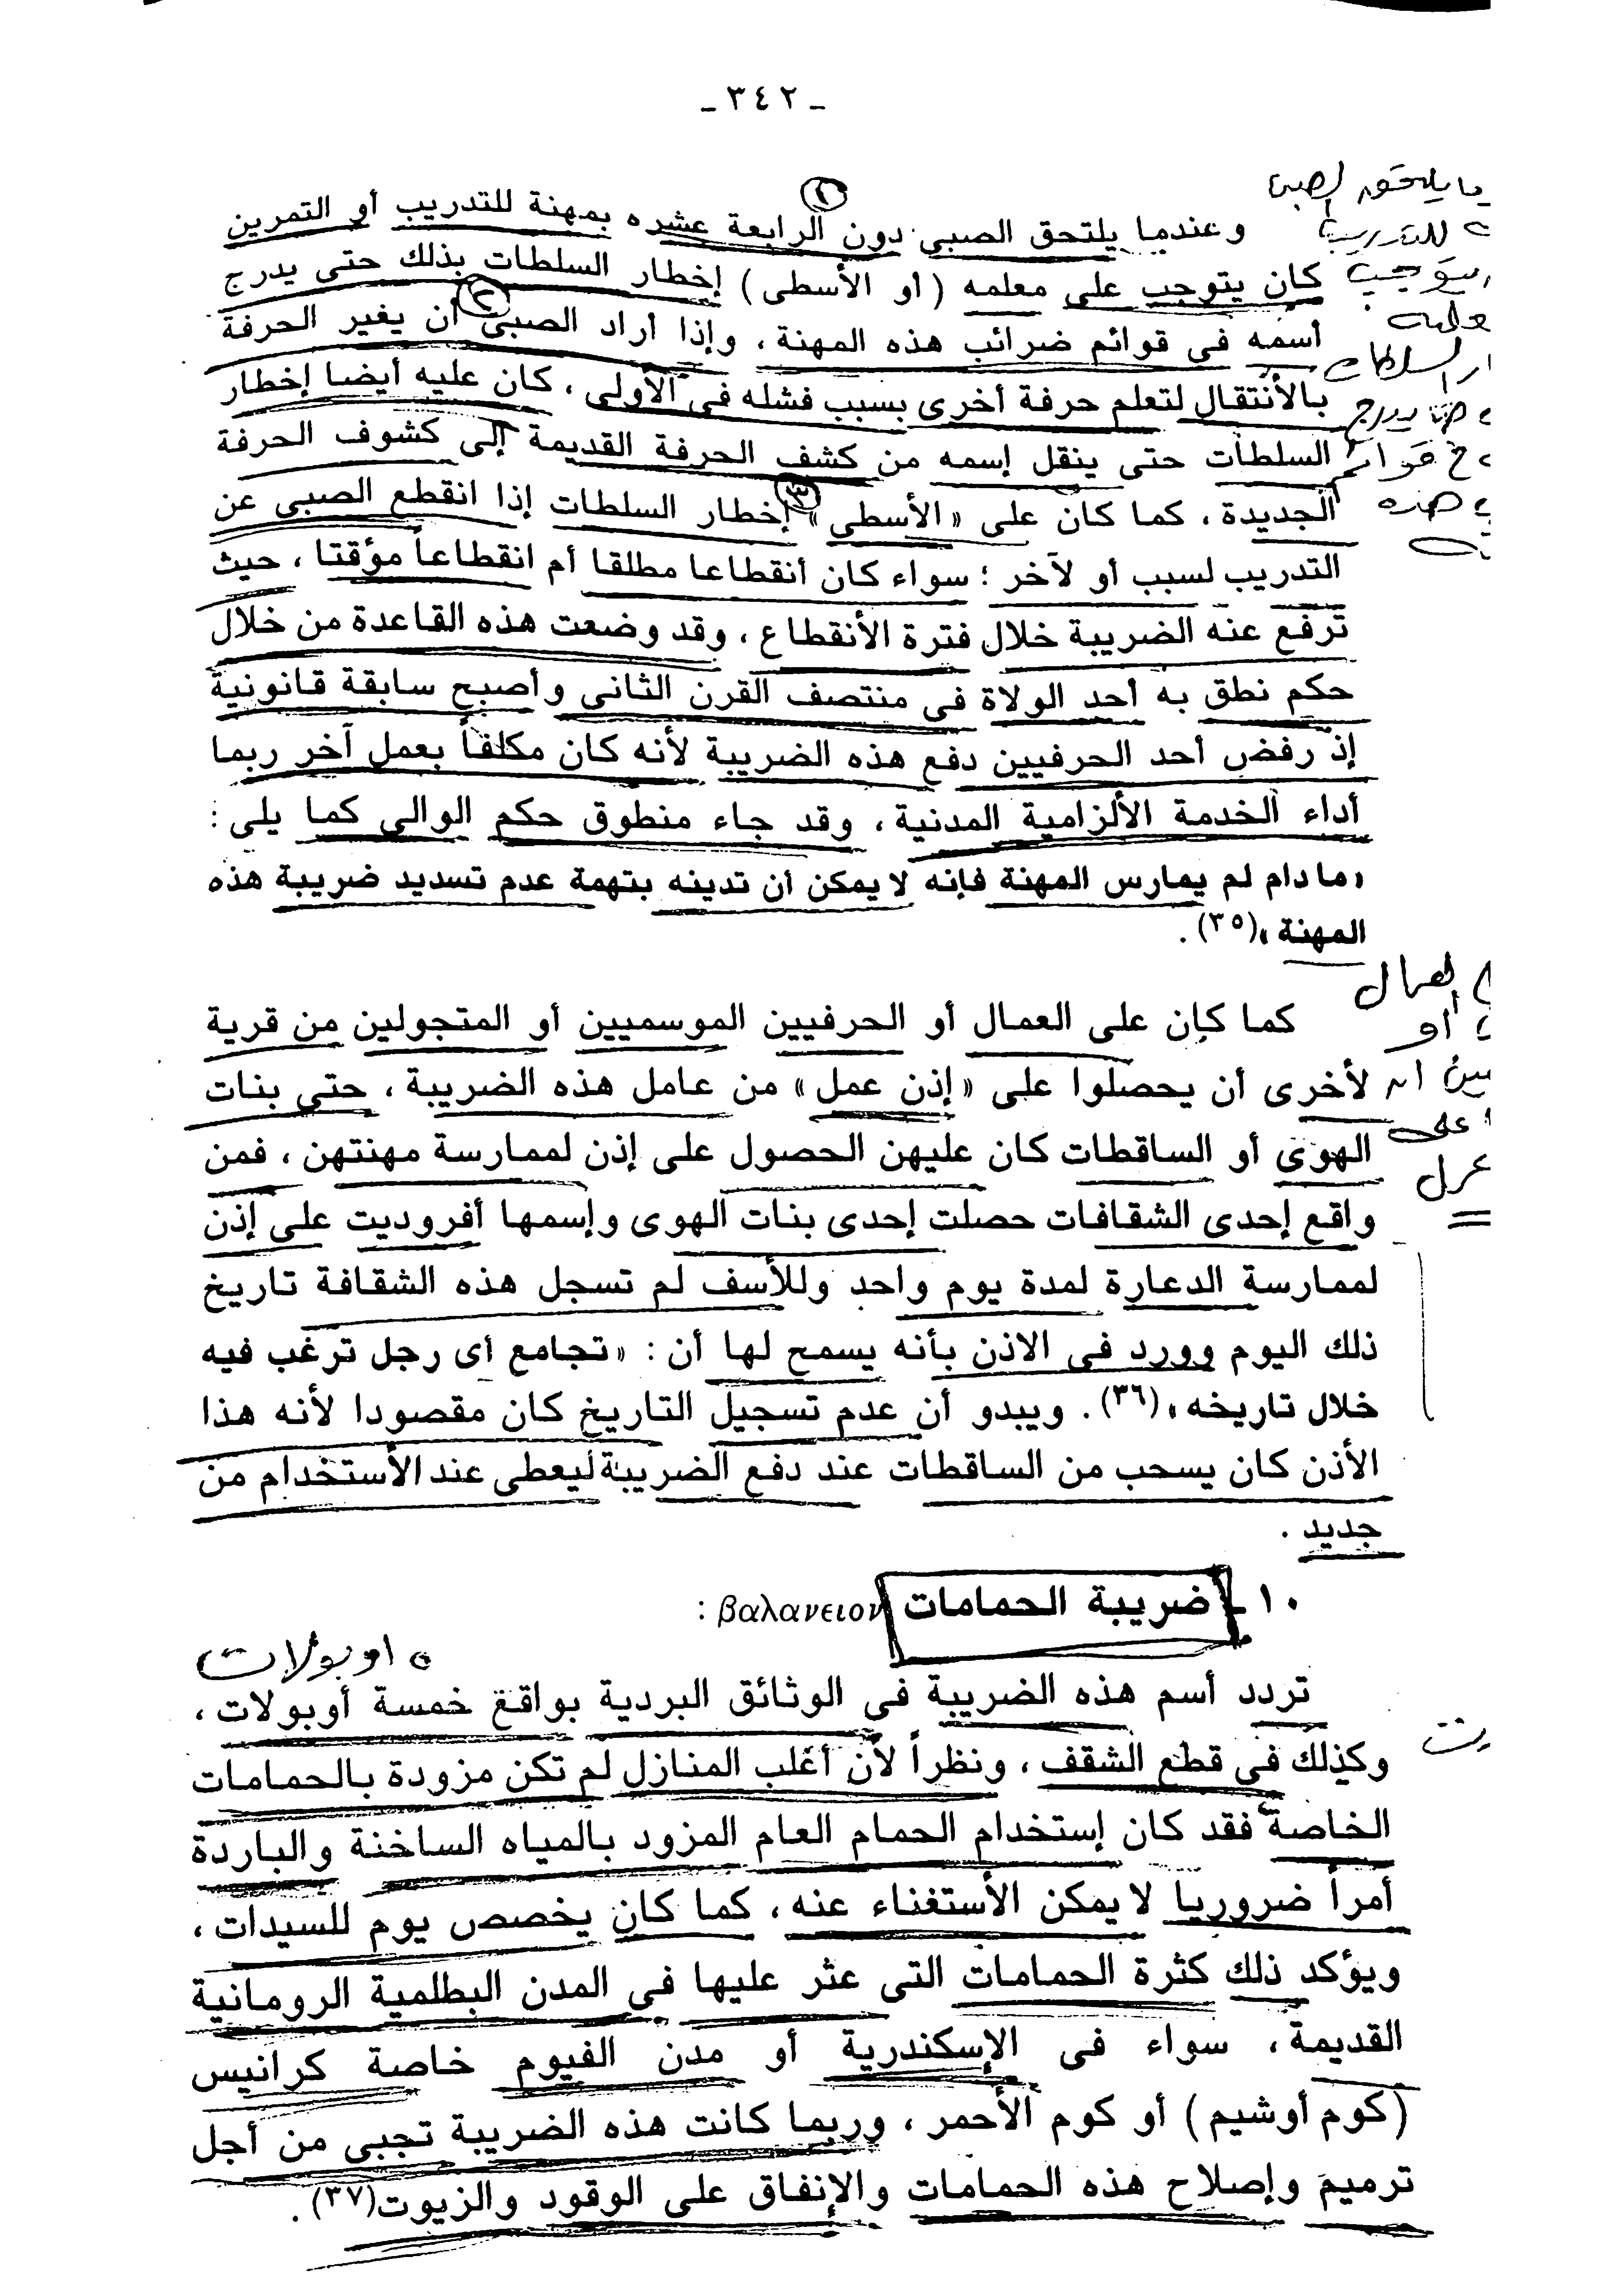 - ٣٤٢ -
وعندما يلتحق الصبى دون الرابعة عشره بمهنة للتدريب أو التمرين
كان يتوجب على معلمه (أو الأسطى) إخطار السلطات بذلك حتى يدرج
أسمه فى قوائم ضرائب هذه المهنة، وإذا أراد الصبى أن يغير الحرفة
بالأنتقال لتعلم حرفة أخرى بسبب فشله فى الأولى، كان عليه أيضا إخطار
السلطات حتى ينقل إسمه من كشف الحرفة القديمة إلى كشوف الحرفة
الجديدة، كما كان على «الأسطى» إخطار السلطات إذا انقطع الصبى عن
التدريب لسبب أو لآخر؛ سواء كان أنقطاعا مطلقا أم انقطاعاً مؤقتا، حيث
ترفع عنه الضريبة خلال فترة الأنقطاع، وقد وضعت هذه القاعدة من خلال
حكم نطق به أحد الولاة فى منتصف القرن الثانى وأصبح سابقة قانونية
إذ رفض أحد الحرفيين دفع هذه الضريبة لأنه كان مكلفاً بعمل آخر ربما
أداء الخدمة الألزامية المدنية، وقد جاء منطوق حكم الوالى كما يلى:
«مادام لم يمارس المهنة فإنه لا يمكن أن تدينه بتهمة عدم تسديد ضريبة هذه
المهنة»(٣٥).
كما كان على العمال أو الحرفيين الموسميين أو المتجولين من قرية
لأخرى أن يحصلوا على «إذن عمل» من عامل هذه الضريبة، حتى بنات
الهوى أو الساقطات كان عليهن الحصول على إذن لممارسة مهنتهن، فمن
واقع إحدى الشقافات حصلت إحدى بنات الهوى وإسمها أفروديت على إذن
لممارسة الدعارة لمدة يوم واحد وللأسف لم تسجل هذه الشقافة تاريخ
ذلك اليوم وورد فى الاذن بأنه يسمح لها أن: «تجامع أى رجل ترغب فيه
خلال تاريخه»(٣٦). ويبدو أن عدم تسجيل التاريخ كان مقصودا لأنه هذا
الأذن كان يسحب من الساقطات عند دفع الضريبة ليعطى عند الأستخدام من
جديد.
١٠ - ضريبة الحمامات βαλανειον:
٥ اوبولات
تردد أسم هذه الضريبة فى الوثائق البردية بواقع خمسة أوبولات،
وكذلك فى قطع الشقف، ونظراً لأن أغلب المنازل لم تكن مزودة بالحمامات
الخاصة فقد كان إستخدام الحمام العام المزود بالمياه الساخنة والباردة
أمراً ضروريا لا يمكن الأستغناء عنه، كما كان يخصص يوم للسيدات،
ويؤكد ذلك كثرة الحمامات التى عثر عليها فى المدن البطلمية الرومانية
القديمة، سواء فى الإسكندرية أو مدن الفيوم خاصة كرانيس
(كوم أوشيم) أو كوم الأحمر، وربما كانت هذه الضريبة تجبى من أجل
ترميم وإصلاح هذه الحمامات والإنفاق على الوقود والزيوت(٣٧).